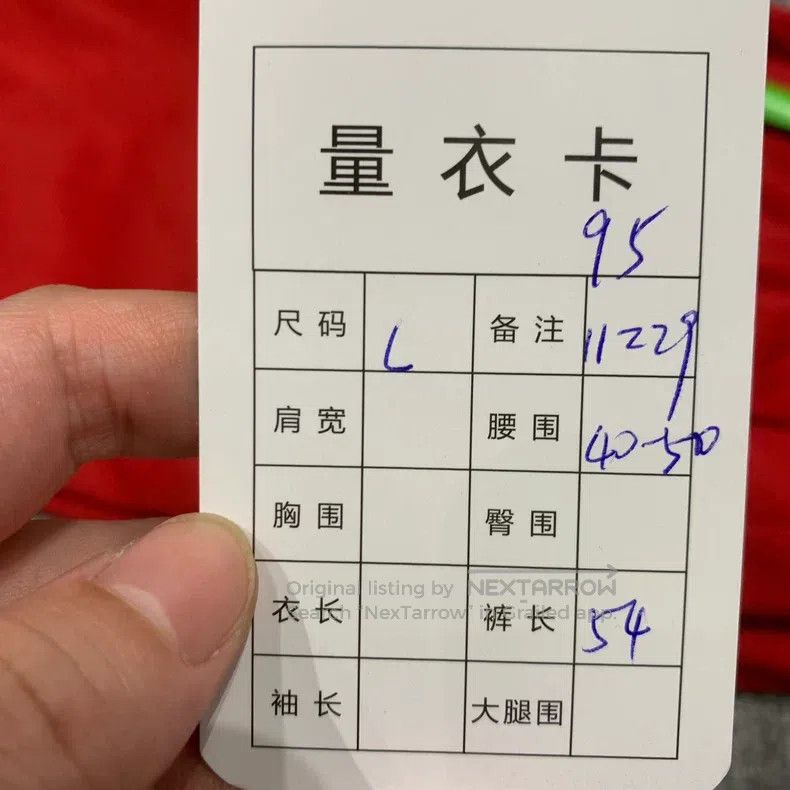 量衣卡
95
尺码 L 备注 11229
肩宽 腰围 40-50
胸围 臀围
衣长 裤长 54
袖长 大腿围
Original listing by NEXTARROW
Search "NexTarrow" in Grailed app.